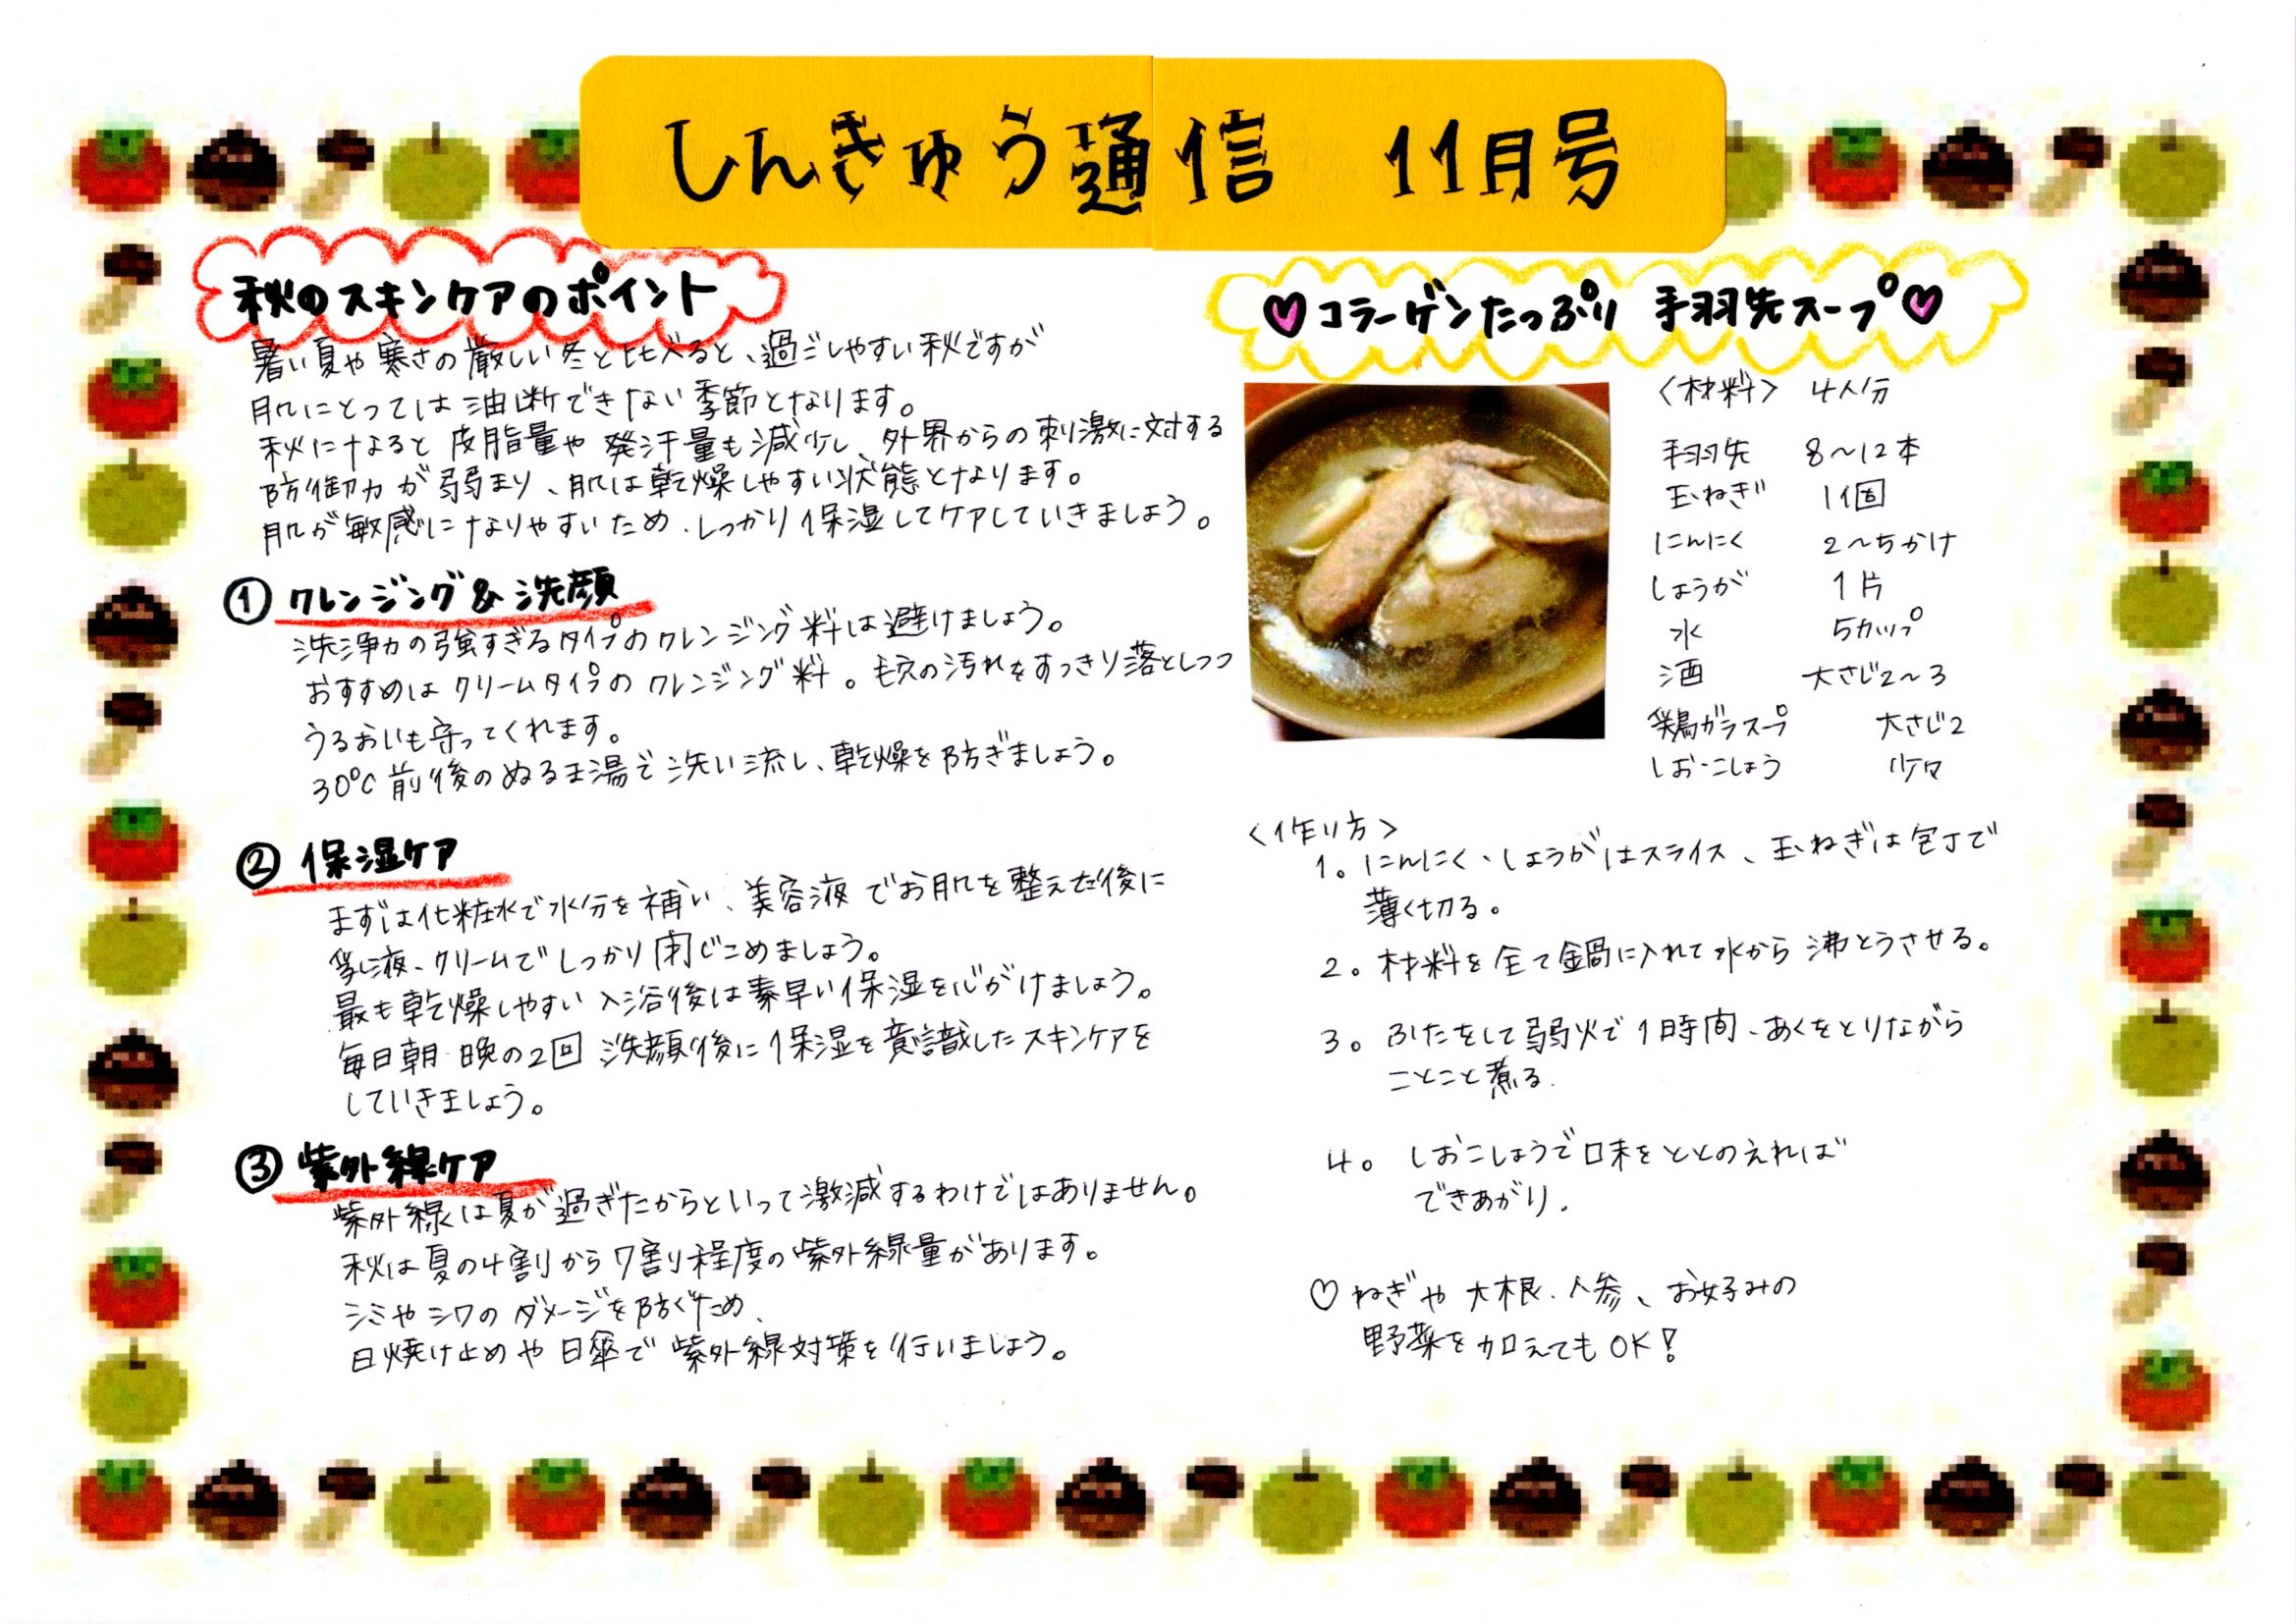 しんきゅう通信 11月号
秋のスキンケアのポイント
暑い夏や寒さの厳しい冬と比べると、過ごしやすい秋ですが
肌にとっては油断できない季節となります。
秋になると皮脂量や発汗量も減少し、外界からの刺激に対する
防御力が弱まり、肌は乾燥しやすい状態となります。
肌が敏感になりやすいため、しっかり保湿してケアしていきましょう。
① クレンジング&洗顔
洗浄力の強すぎるタイプのクレンジング料は避けましょう。
おすすめはクリームタイプのクレンジング料。毛穴の汚れをすっきり落としつつ
うるおいも守ってくれます。
30℃前後のぬるま湯で洗い流し、乾燥を防ぎましょう。
② 保湿ケア
まずは化粧水で水分を補い、美容液でお肌を整えた後に
乳液、クリームでしっかり閉じこめましょう。
最も乾燥しやすい入浴後は素早い保湿を心がけましょう。
毎日朝・晩の2回 洗顔後に保湿を意識したスキンケアを
していきましょう。
③ 紫外線ケア
紫外線は夏が過ぎたからといって激減するわけではありません。
秋は夏の4割から7割程度の紫外線量があります。
シミやシワのダメージを防ぐため、
日焼け止めや日傘で紫外線対策を行いましょう。
♡コラーゲンたっぷり 手羽先スープ♡
〈材料〉 4人分
手羽先 8〜12本
玉ねぎ 1個
にんにく 2〜5かけ
しょうが 1片
水 5カップ
酒 大さじ2〜3
鶏ガラスープ 大さじ2
しお・こしょう 少々
〈作り方〉
1。にんにく・しょうがはスライス、玉ねぎは包丁で
薄く切る。
2。材料を全て鍋に入れて水から沸とうさせる。
3。ふたをして弱火で1時間、あくをとりながら
ことこと煮る.
4。しおこしょうで味をととのえれば
できあがり.
♡ねぎや大根、人参、お好みの
野菜を加えてもOK!